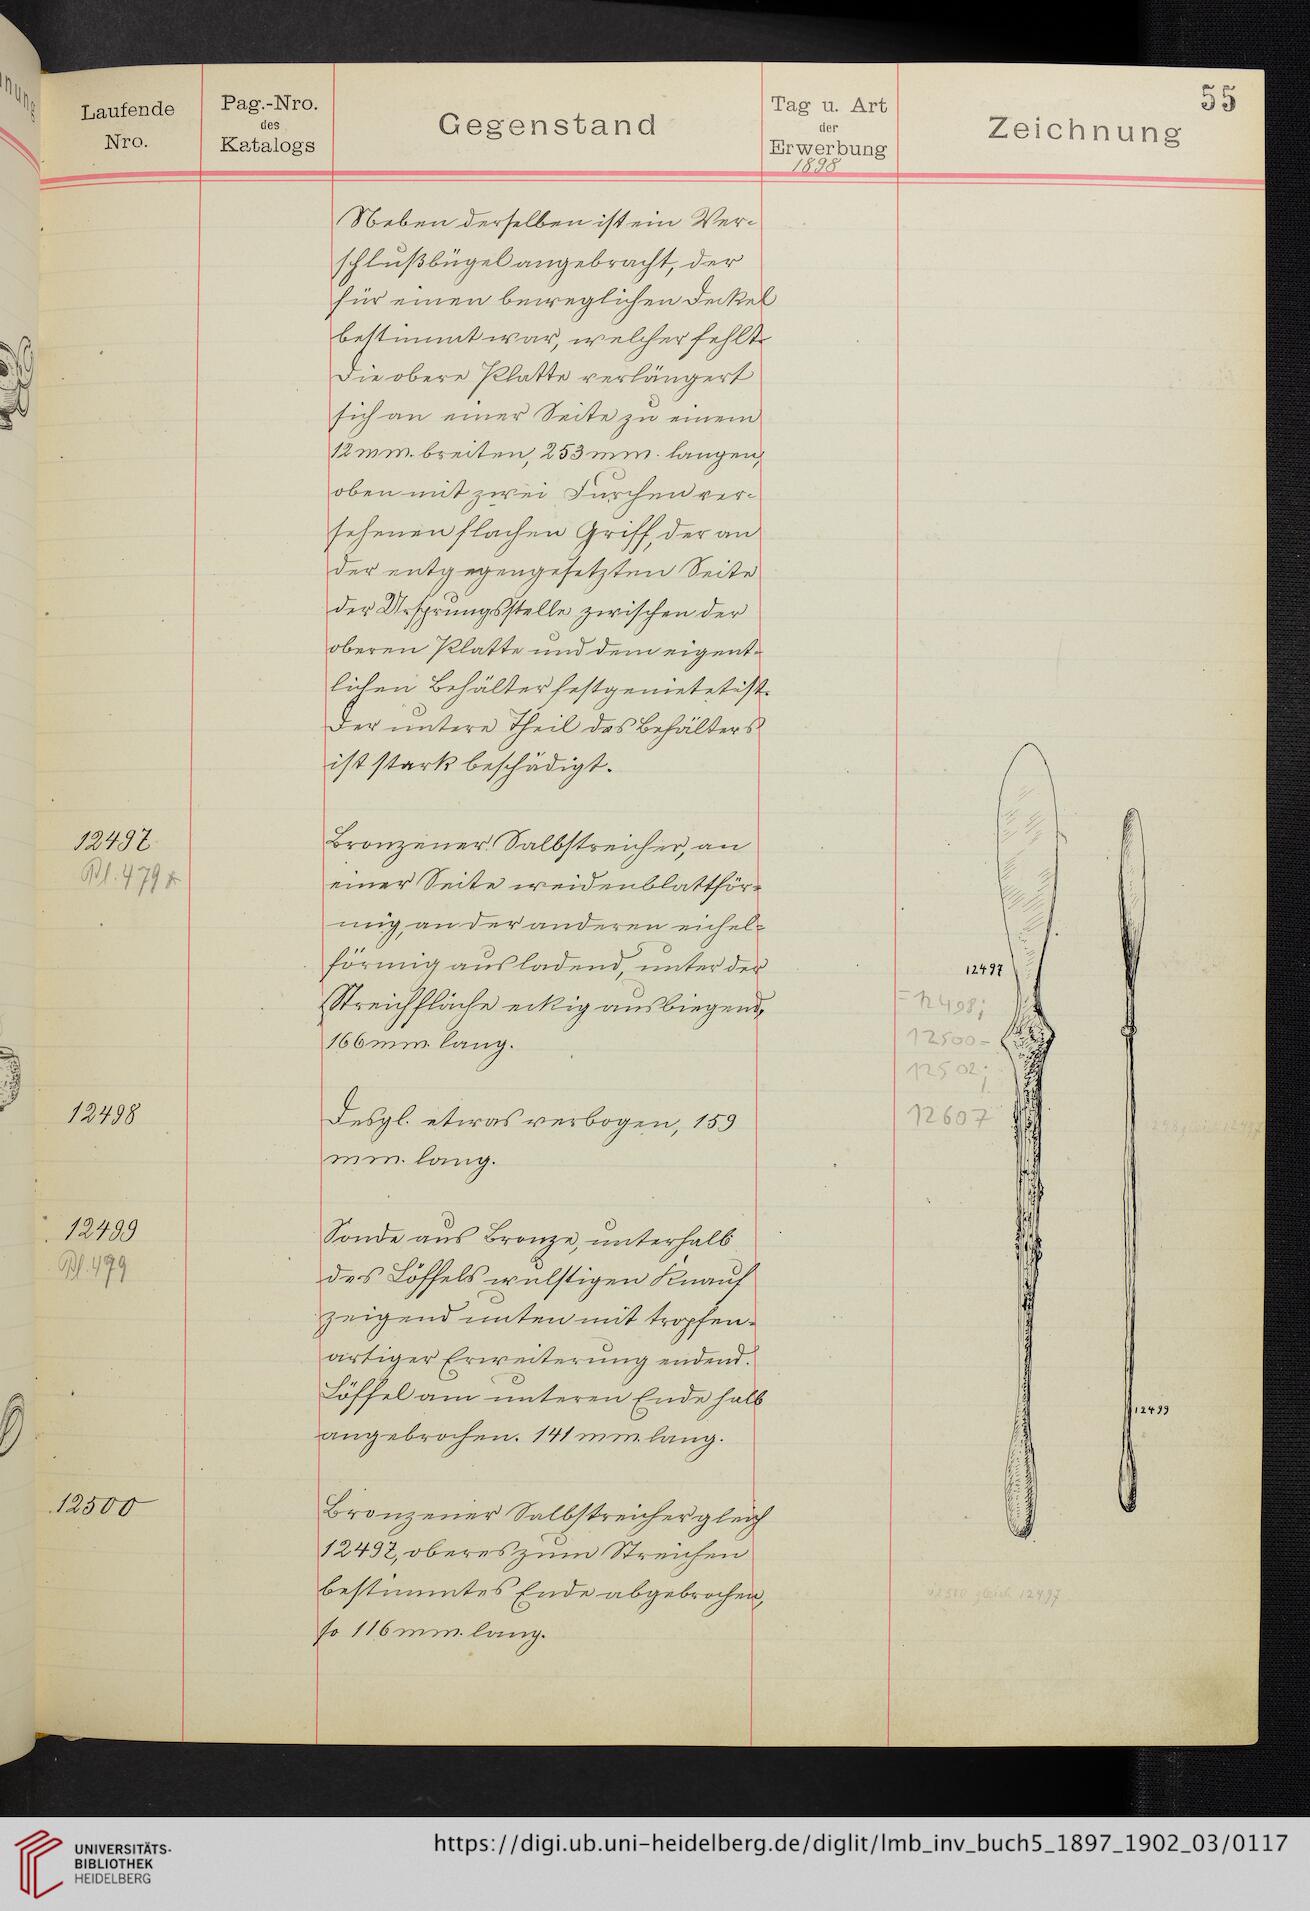 55
Laufende
Nro.
Pag.-Nro.
des
Katalogs
Gegenstand
Tag u. Art
der
Erwerbung
1898
Zeichnung
Neben derselben ist ein Ver-
schlußbügel angebracht, der
für einen beweglichen Deckel
bestimmt war, welcher fehlt.
Die obere Platte verlängert
sich an einer Seite zu einem
12 mm. breiten, 253 mm. langen,
oben mit zwei Furchen ver-
sehenen flachen Griff, der an
der entgegengesetzten Seite
der Ursprungsstelle zwischen der
oberen Platte und dem eigent-
lichen Behälter festgenietet ist.
Der untere Theil des Behälters
ist stark beschädigt.
12497
Bl. 479
Bronzener Salbstreicher, an
einer Seite weidenblattför-
mig, an der anderen eichel-
förmig ausladend, unter der
Streichfläche eckig ausbiegend,
166 mm. lang.
12498
Desgl. etwas verbogen, 159
mm. lang.
12499
Bl. 479
Sonde aus Bronze, unterhalb
des Löffels wulstigen Knauf
zeigend unten mit tropfen-
artiger Erweiterung endend.
Löffel am unteren Ende halb
angebrochen. 141 mm. lang.
12500
Bronzener Salbstreicher gleich
12497, oberes zum Streichen
bestimmtes Ende abgebrochen,
so 116 mm. lang.
12497
= 12498;
12500-
12502;
12607
12499
12500 gleich 12497
UNIVERSITÄTS-
BIBLIOTHEK
HEIDELBERG
https://digi.ub.uni-heidelberg.de/diglit/lmb_inv_buch5_1897_1902_03/0117